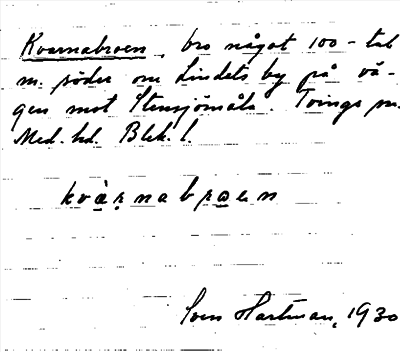 Kvarnabroen, bro något 100-tal
m. söder om Lindets by på vä-
gen mot Stensjömåla. Tvings sn.
Med. hd. Blek. l.
kvàrnabroen
Sven Hartman, 1930